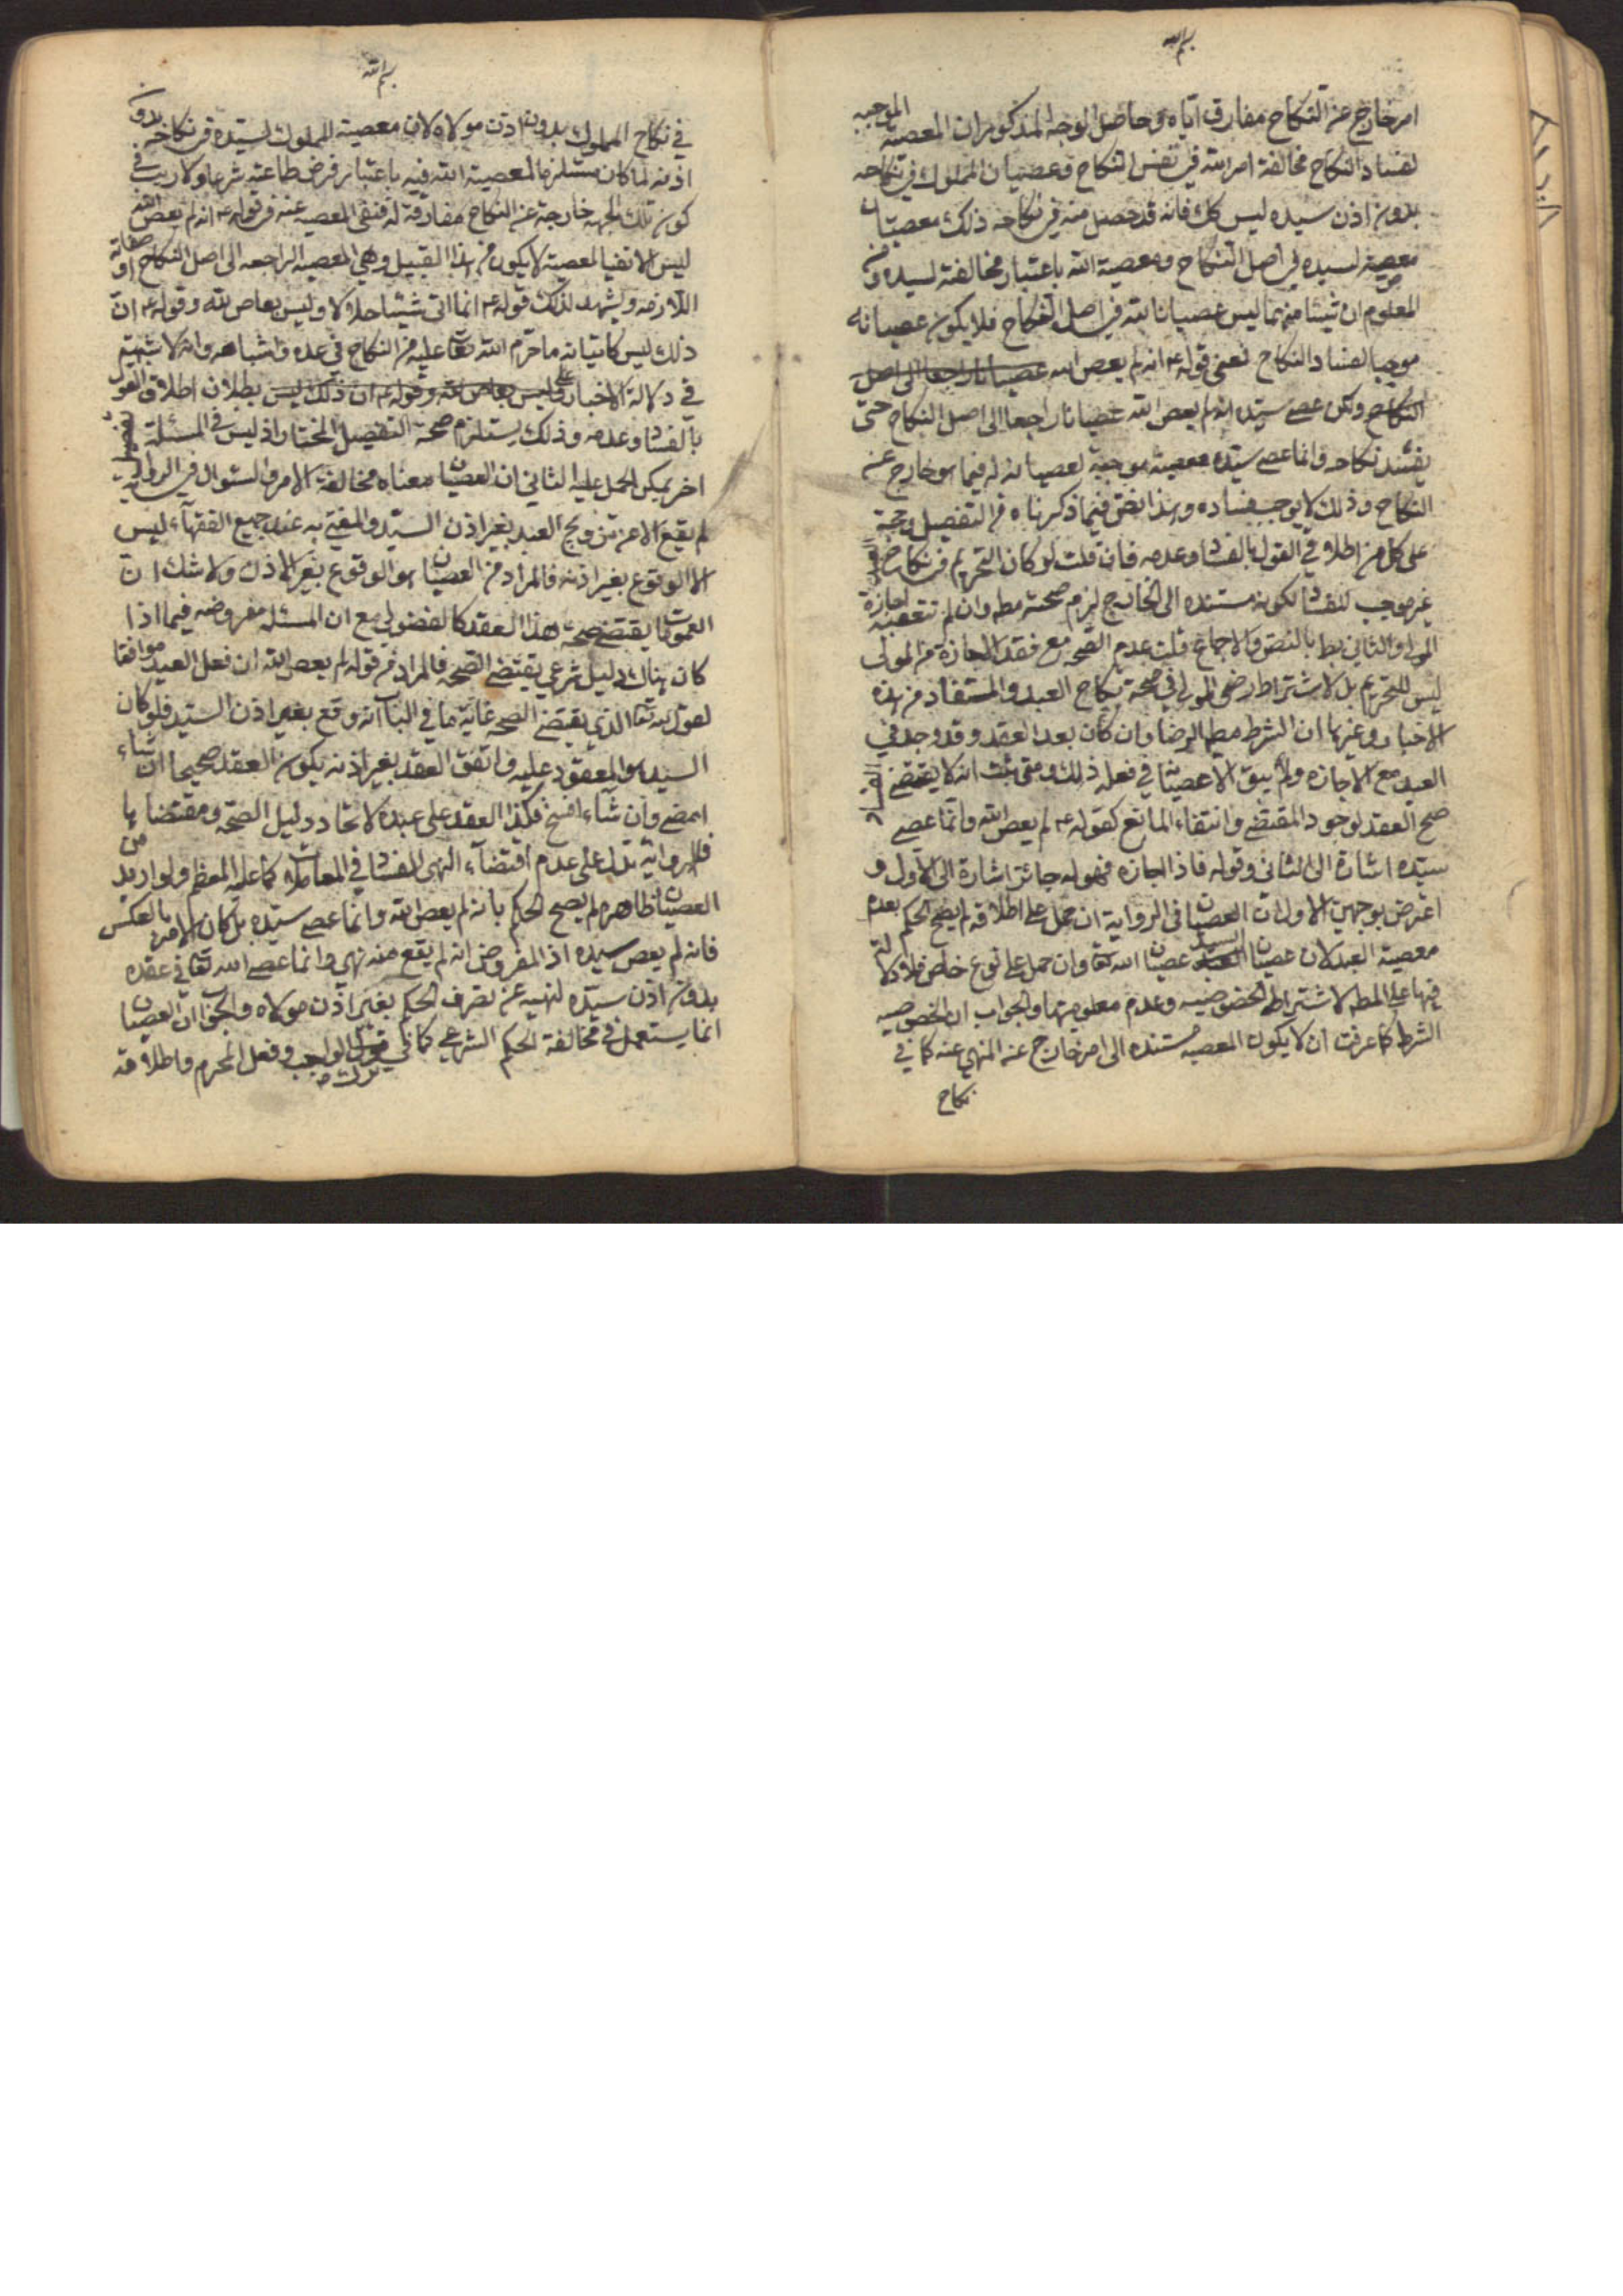 بسم الله
امر خارج عن النكاح مفارق اياه وحاصل الوجه المذكور ان المعصية الموجبه
لفساد النكاح مخالفة امر الله في نفس النكاح وعصيان المملوك في نكاحه
بدون اذن سيده ليس كك فانه قد حصل منه في نكاحه ذلك معصيتان
معصية لسيده في اصل النكاح ومعصية الله باعتبار مخالفة لسيده ومن
المعلوم ان شيئا منهما ليس عصيانا لله في اصل النكاح فلا يكون عصيانه
موجبا لفساد النكاح فمعنى قوله ع انه لم يعص الله عصيانا راجعا الى اصل
النكاح ولكن عصى سيده انه لم يعص الله عصيانا راجعا الى اصل النكاح حتى
يفسد نكاحه وانما عصى سيده معصية موجبة لعصيانه له فيما هو خارج عن
النكاح وذلك لا يوجب فساده وهذا نص فيما ذكرناه من التفصيل وحجة
على كل من اطلاقي القول بالفساد وعدمه فان قلت لو كان التحريم في نكاح
غير موجب للفساد لكونه مستنده الى الخارج لزم صحته مطه وان لم تتعقبه اجازة
المولى والثاني بط بالنص والاجماع قلت عدم الصحه مع فقد الاجازة من المولى
ليس للتحريم بل لاشتراط رضى المولى في صحة نكاح العبد والمستفاد من هذه
الاخبار وغيرها ان الشرط مطه الرضا وان كان بعد العقد وقد وجد في
العبد مع الاجازه ولم يبق الا عصيانه في فعله ذلك ومتى ثبت انه لا يقتضى الفساد
صح العقد لوجود المقتضى وانتفاء المانع كقوله ع لم يعص الله وانما عصى
سيده اشارة الى الثاني وقوله فاذا اجازه فهو له جائز اشارة الى الاول و
اعترض بوجهين الاول ان العصيان في الرواية ان حمل على اطلاقه لم يصح الحكم بعدم
معصية العبد لان عصيان السيد عصيان الله تعا وان حمل على نوع خاص فلا دلالة
فيها على المطه لاشتراط الخصوصيه وعدم معلوميتها والجواب ان الخصوصيه
الشرط كما عرفت ان لا يكون المعصيه مستنده الى امر خارج عنه المنهي عنه كما في
نكاح
بسم الله
في نكاح المملوك بدون اذن مولاه لان معصية المملوك لسيده في نكاحه بدون
اذنه لما كان مستلزما لمعصية الله فيه باعتبار فرض طاعته شرعا ولا ريب في
كون تلك الجهه خارجة عن النكاح مفارقة له فنفى المعصيه عنه في قوله ع انه لم يعص الله
ليس الا نفيا لمعصية لا يكون من هذا القبيل وهي المعصيه الراجعه الى اصل النكاح او صفاته
اللازمه ويشهد لذلك قوله ع انما اتى شيئا حلالا وليس بعاص لله وقوله ع ان
ذلك ليس كاتيانه ما حرم الله تعا عليه من النكاح في عده واشباهه وانه لا شبهة
في دلالة الاخبار على وليس بعاص لله وقوله ع ان ذلك ليس بطلان اطلاق القول
بالفساد وعدمه وذلك يستلزم صحة التفصيل المختار اذ ليس في المسئلة تفصيل
اخر يمكن الحمل عليه الثاني ان العصيان معناه مخالفة الامر والسئوال في الرواية
لم يقع الا عن تزويج العبد بغير اذن السيد والمفتى به عند جميع الفقهاء ليس
الا الوقوع بغير اذنه فالمراد من العصيان هو الوقوع بغير الاذن ولا شك ان
العمومات يقتضى صحة هذا العقد كالفضولي مع ان المسئله مفروضه فيما اذا
كان هناك دليل شرعي يقتضى الصحه فالمراد من قوله لم يعص الله ان فعل العبد موافقا
لقوله تعا الذي يقتضى الصحه غاية ما في الباب انه وقع بغير اذن السيد فلو كان
السيد هو المعقود عليه واتفق العقد بغير اذنه يكون العقد صحيحا ان شاء
امضى وان شاء افسخ فكذا العقد على عبده لاتحاد دليل الصحه ومقتضاها
فالرواية تدل على عدم اقتضاء النهى للفساد في المعاملات كما عليه المعظم ولو اريد من
العصيان ظاهره لم يصح الحكم بانه لم يعص الله وانما عصى سيده بل كان الامر بالعكس
فانه لم يعص سيده اذ المفروض انه لم يقع منه نهي وانما عصى الله تعا في عقده
بدون اذن سيده لنهيه عن تصرف الحكم بغير اذن مولاه والجواب ان العصيان
انما يستعمل في مخالفة الحكم الشرعى كما في ترك الواجب وفعل المحرم واطلاقه